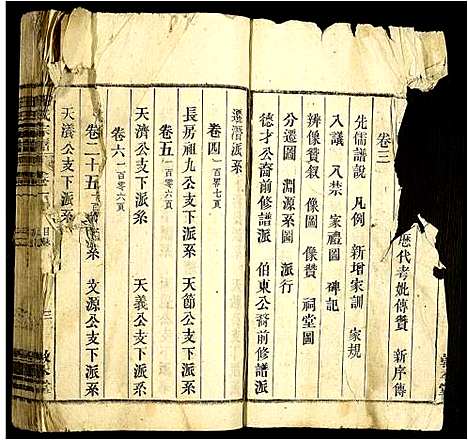 歷代考妣傳贊　新序傳
卷三
先儒譜說　凡例　新增家訓　家規
入議　入禁　家禮圖　碑記
辨像贊叙　像圖　像贊　祠堂圖
分遷圖　淵源系圖　派行
德才公裔前修譜派　伯東公裔前修譜派
遷潛派系
卷四一百零七頁
長房祖九公支下派系　天節公支下派系
卷五一百零六頁
天濟公支下派系　天義公支下派系
卷六一百零六頁
卷二十五　系　文源公支下派系
天濟公支下派系
宗譜　目錄　三　敦本堂